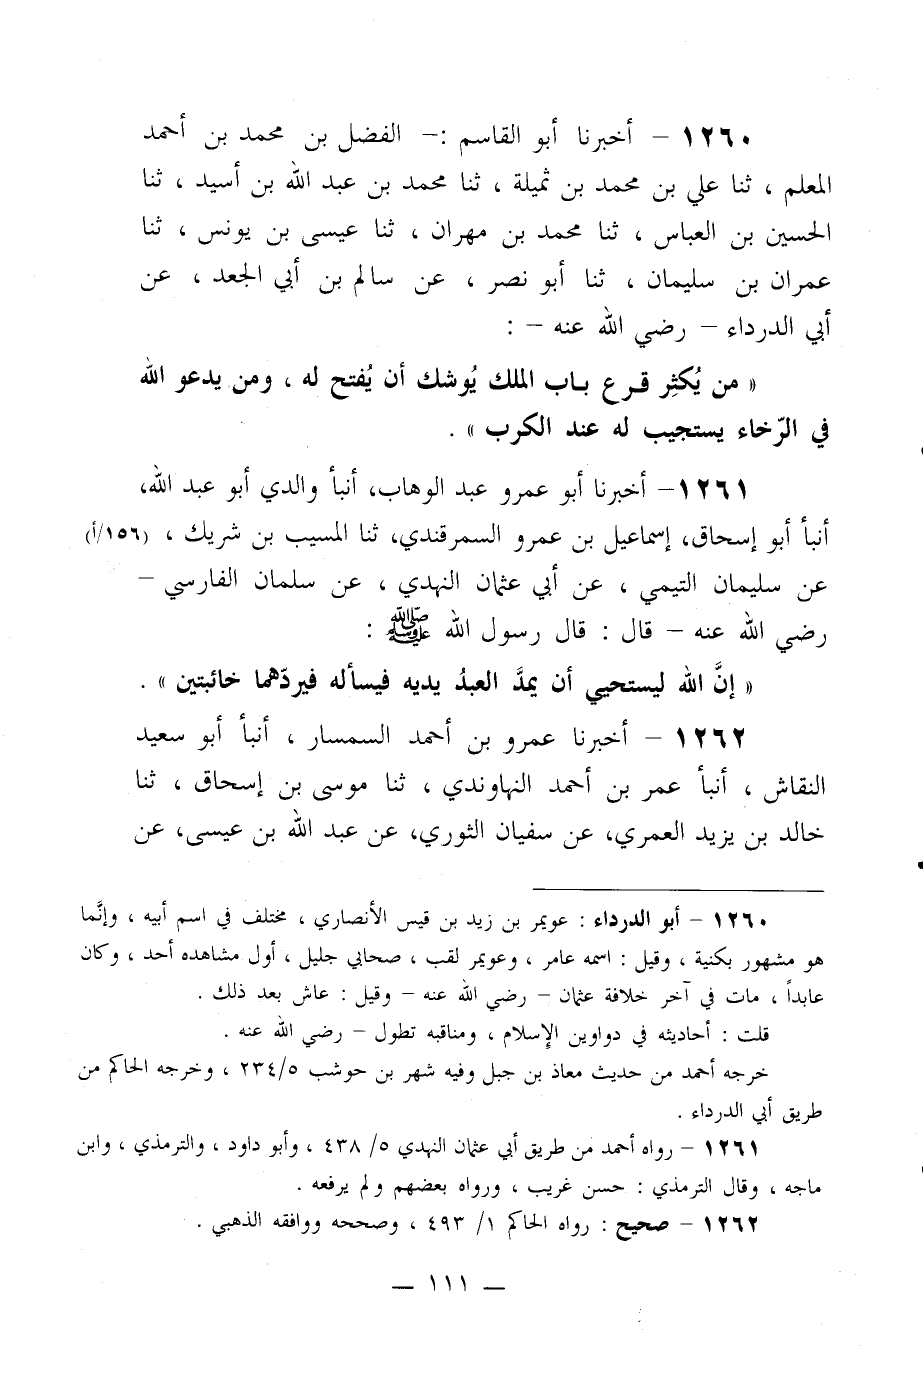 ١٢٦٠ – أخبرنا أبو القاسم :– الفضل بن محمد بن أحمد
المعلم ، ثنا علي بن محمد بن ثميلة ، ثنا محمد بن عبد الله بن أسيد ، ثنا
الحسين بن العباس ، ثنا محمد بن مهران ، ثنا عيسى بن يونس ، ثنا
عمران بن سليمان ، ثنا أبو نصر ، عن سالم بن أبي الجعد ، عن
أبي الدرداء – رضي الله عنه – :
« من يُكثِر قـرع بـاب الملك يُوشك أن يُفتح له ، ومن يدعو الله
في الرّخاء يستجيب له عند الكرب » .
١٢٦١ – أخبرنا أبو عمرو عبد الوهاب، أنبأ والدي أبو عبد الله،
أنبأ أبو إسحاق، إسماعيل بن عمرو السمرقندي، ثنا المسيب بن شريك ، (١٥٦/أ)
عن سليمان التيمي ، عن أبي عثمان النهدي ، عن سلمان الفارسي –
رضي الله عنه – قال : قال رسول الله ﷺ :
« إنَّ الله ليستحيي أن يمدَّ العبدُ يديه فيسأله فيردّهما خائبتين » .
١٢٦٢ – أخبرنا عمرو بن أحمد السمسار ، أنبأ أبو سعيد
النقاش ، أنبأ عمر بن أحمد النهاوندي ، ثنا موسى بن إسحاق ، ثنا
خالد بن يزيد العمري، عن سفيان الثوري، عن عبد الله بن عيسى، عن
١٢٦٠ – أبو الدرداء : عويمر بن زيد بن قيس الأنصاري ، مختلف في اسم أبيه ، وإنَّما
هو مشهور بكنية ، وقيل : اسمه عامر ، وعويمر لقب ، صحابي جليل ، أول مشاهده أحد ، وكان
عابداً ، مات في آخر خلافة عثمان – رضي الله عنه – وقيل : عاش بعد ذلك .
قلت : أحاديثه في دواوين الإسلام ، ومناقبه تطول – رضي الله عنه .
خرجه أحمد من حديث معاذ بن جبل وفيه شهر بن حوشب ٢٣٤/٥ ، وخرجه الحاكم من
طريق أبي الدرداء .
١٢٦١ – رواه أحمد من طريق أبي عثمان النهدي ٥/ ٤٣٨ ، وأبو داود ، والترمذي ، وابن
ماجه ، وقال الترمذي : حسن غريب ، ورواه بعضهم ولم يرفعه .
١٢٦٢ – صحيح : رواه الحاكم ١/ ٤٩٣ ، وصححه ووافقه الذهبي .
— ١١١ —